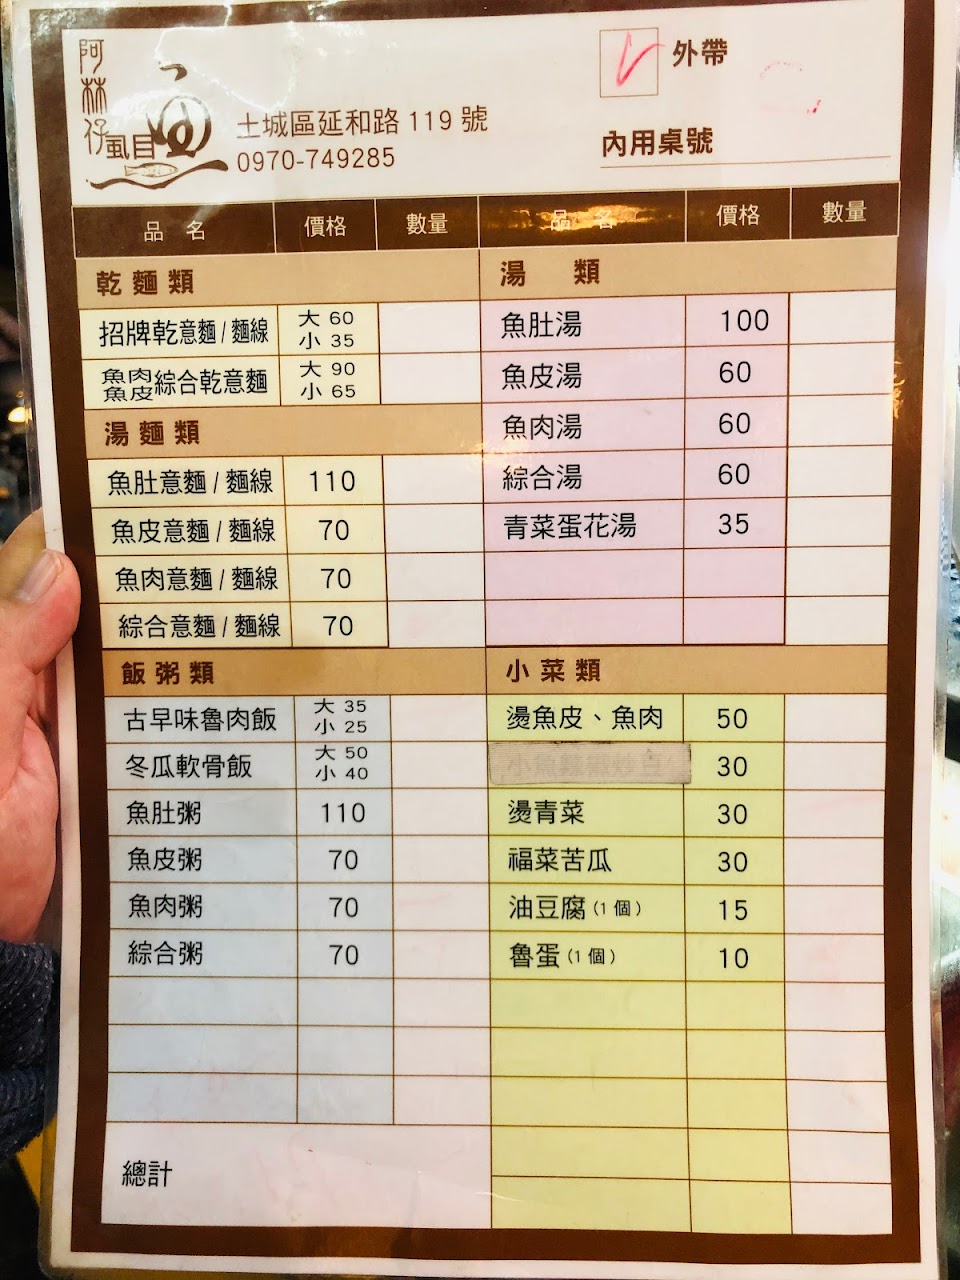 阿林仔
虱目魚
土城區延和路 119 號
0970-749285
外帶
內用桌號
品名 價格 數量
乾麵類
招牌乾意麵/麵線 大 60 小 35
魚肉魚皮綜合乾意麵 大 90 小 65
湯麵類
魚肚意麵/麵線 110
魚皮意麵/麵線 70
魚肉意麵/麵線 70
綜合意麵/麵線 70
飯粥類
古早味魯肉飯 大 35 小 25
冬瓜軟骨飯 大 50 小 40
魚肚粥 110
魚皮粥 70
魚肉粥 70
綜合粥 70
總計
品名 價格 數量
湯類
魚肚湯 100
魚皮湯 60
魚肉湯 60
綜合湯 60
青菜蛋花湯 35
小菜類
燙魚皮、魚肉 50
30
燙青菜 30
福菜苦瓜 30
油豆腐(1個) 15
魯蛋(1個) 10